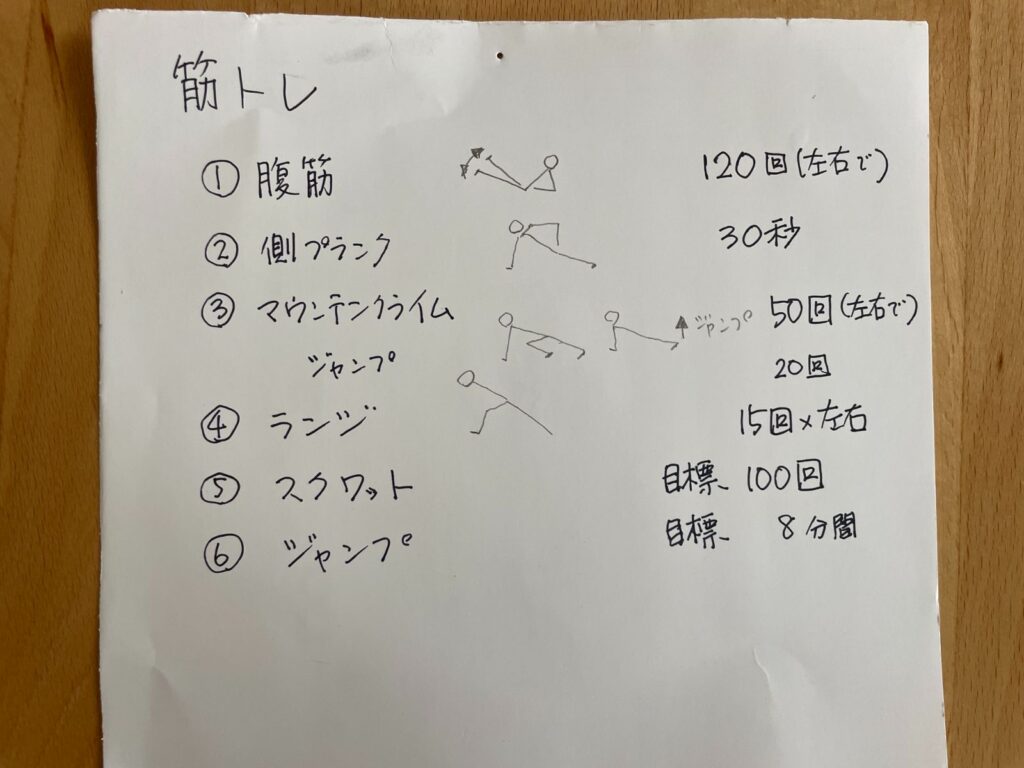 筋トレ
① 腹筋 120回(左右で)
② 側プランク 30秒
③ マウンテンクライム ジャンプ 50回(左右で)
ジャンプ 20回
④ ランジ 15回×左右
⑤ スクワット 目標 100回
⑥ ジャンプ 目標 8分間